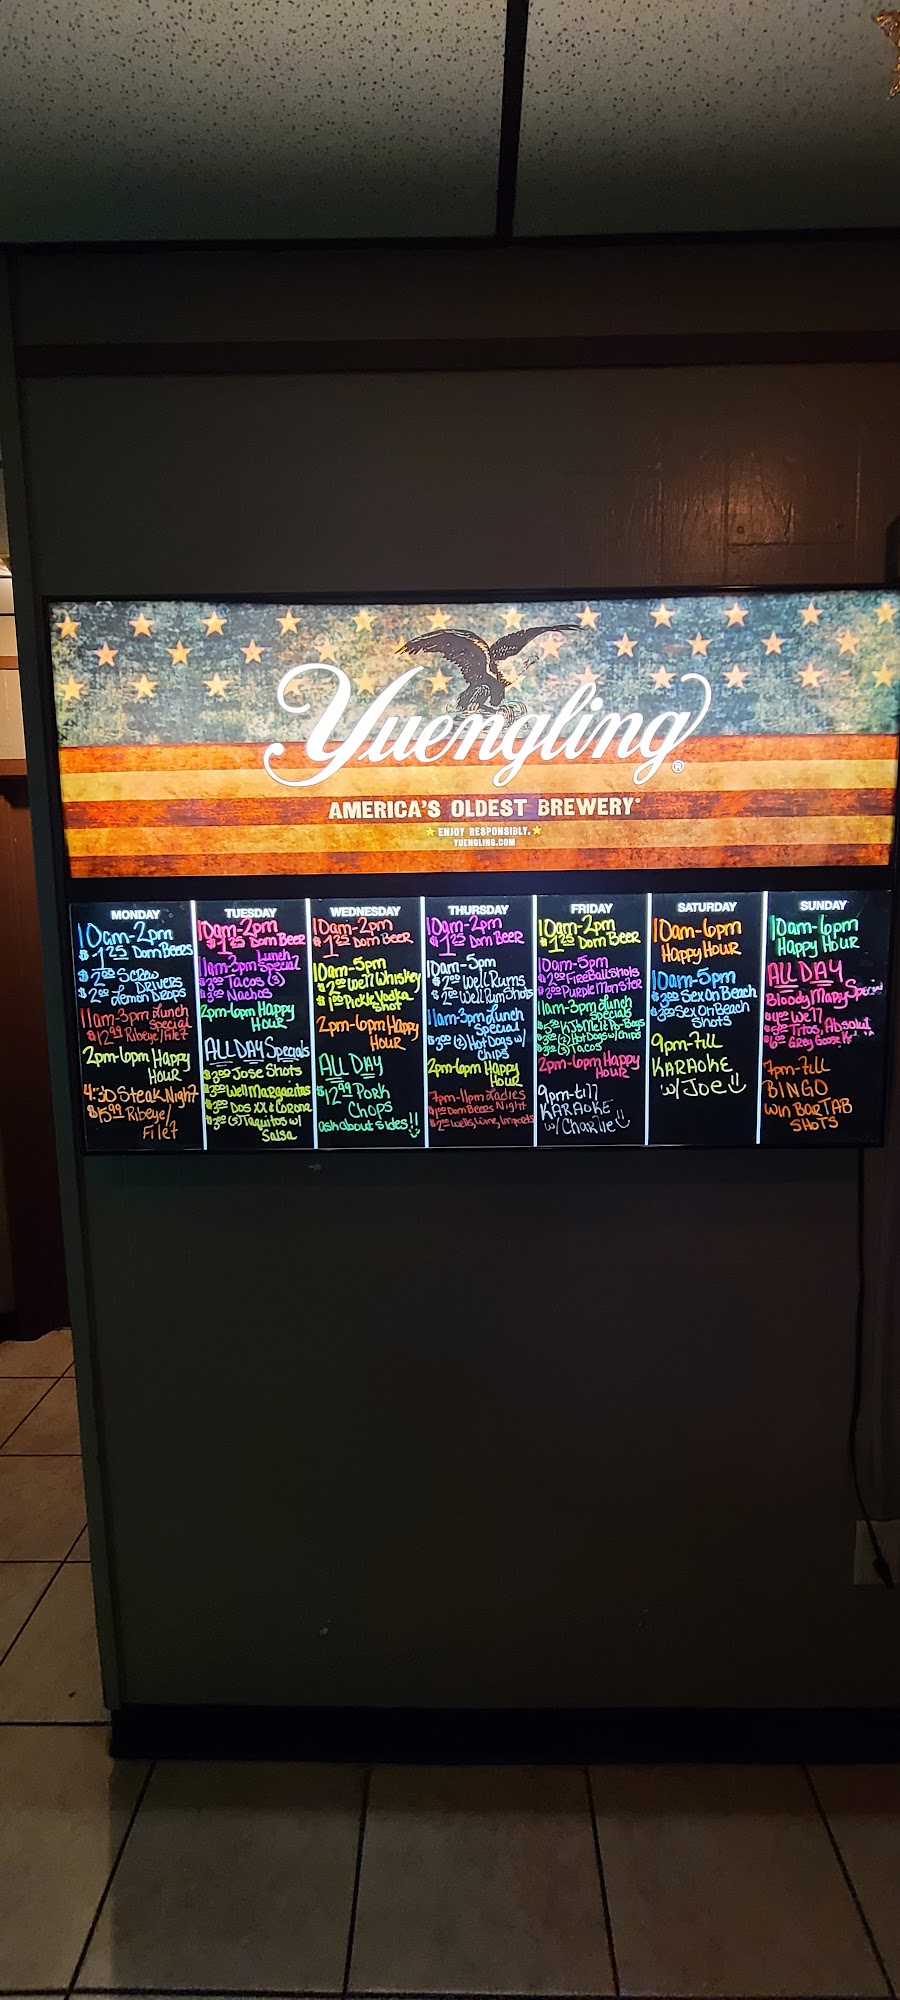 Yuengling®
AMERICA'S OLDEST BREWERY®
ENJOY RESPONSIBLY.
YUENGLING.COM
MONDAY
10am-2pm
$1.25 Dom Beers
$2.00 Screw
Drivers
$2.00 Lemon Drops
11am-3pm Lunch
Special
$12.99 Ribeye/Filet
2pm-6pm Happy
HOUR
4:30 Steak Night
$15.99 Ribeye/
Filet
TUESDAY
10am-2pm
$1.25 Dom Beer
Lunch
11am-3pm Special
Tacos (3)
Nachos
2pm-6pm Happy
HOUR
ALL DAY Specials
Jose Shots
Well Margaritas
Dos XX & Corona
Taquitos w/
Salsa
WEDNESDAY
10am-2pm
$1.25 Dom Beer
10am-5pm
$2.00 Well Whiskey
Pickle Vodka
Shot
2pm-6pm Happy
HOUR
ALL DAY
$12.99 Pork
Chops
ask about sides!!
THURSDAY
10am-2pm
$1.25 Dom Beer
10am-5pm
$2.00 Well Rums
$2.00 Well Rum Shots
11am-3pm Lunch
Special
Hot Dogs w/
Chips
2pm-6pm Happy
HOUR
7pm-11pm Ladies
Dom Beers Night
Wells, Wine, Imports
FRIDAY
10am-2pm
$1.25 Dom Beer
10am-5pm
FireBall Shots
Purple Monster
11am-3pm Lunch
Specials
Hot Dogs w/ Chips
Tacos
2pm-6pm Happy
HOUR
9pm-till
KARAOKE
w/ Charlie
SATURDAY
10am-6pm
Happy HOUR
10am-5pm
$3.00 Sex On Beach
$3.00 Sex On Beach
Shots
9pm-till
KARAOKE
w/ Joe
SUNDAY
10am-6pm
Happy HOUR
ALL DAY
Bloody Mary Special
Well
Titos, Absolut
Grey Goose
7pm-till
BINGO
WIN BAR TAB
SHOTS